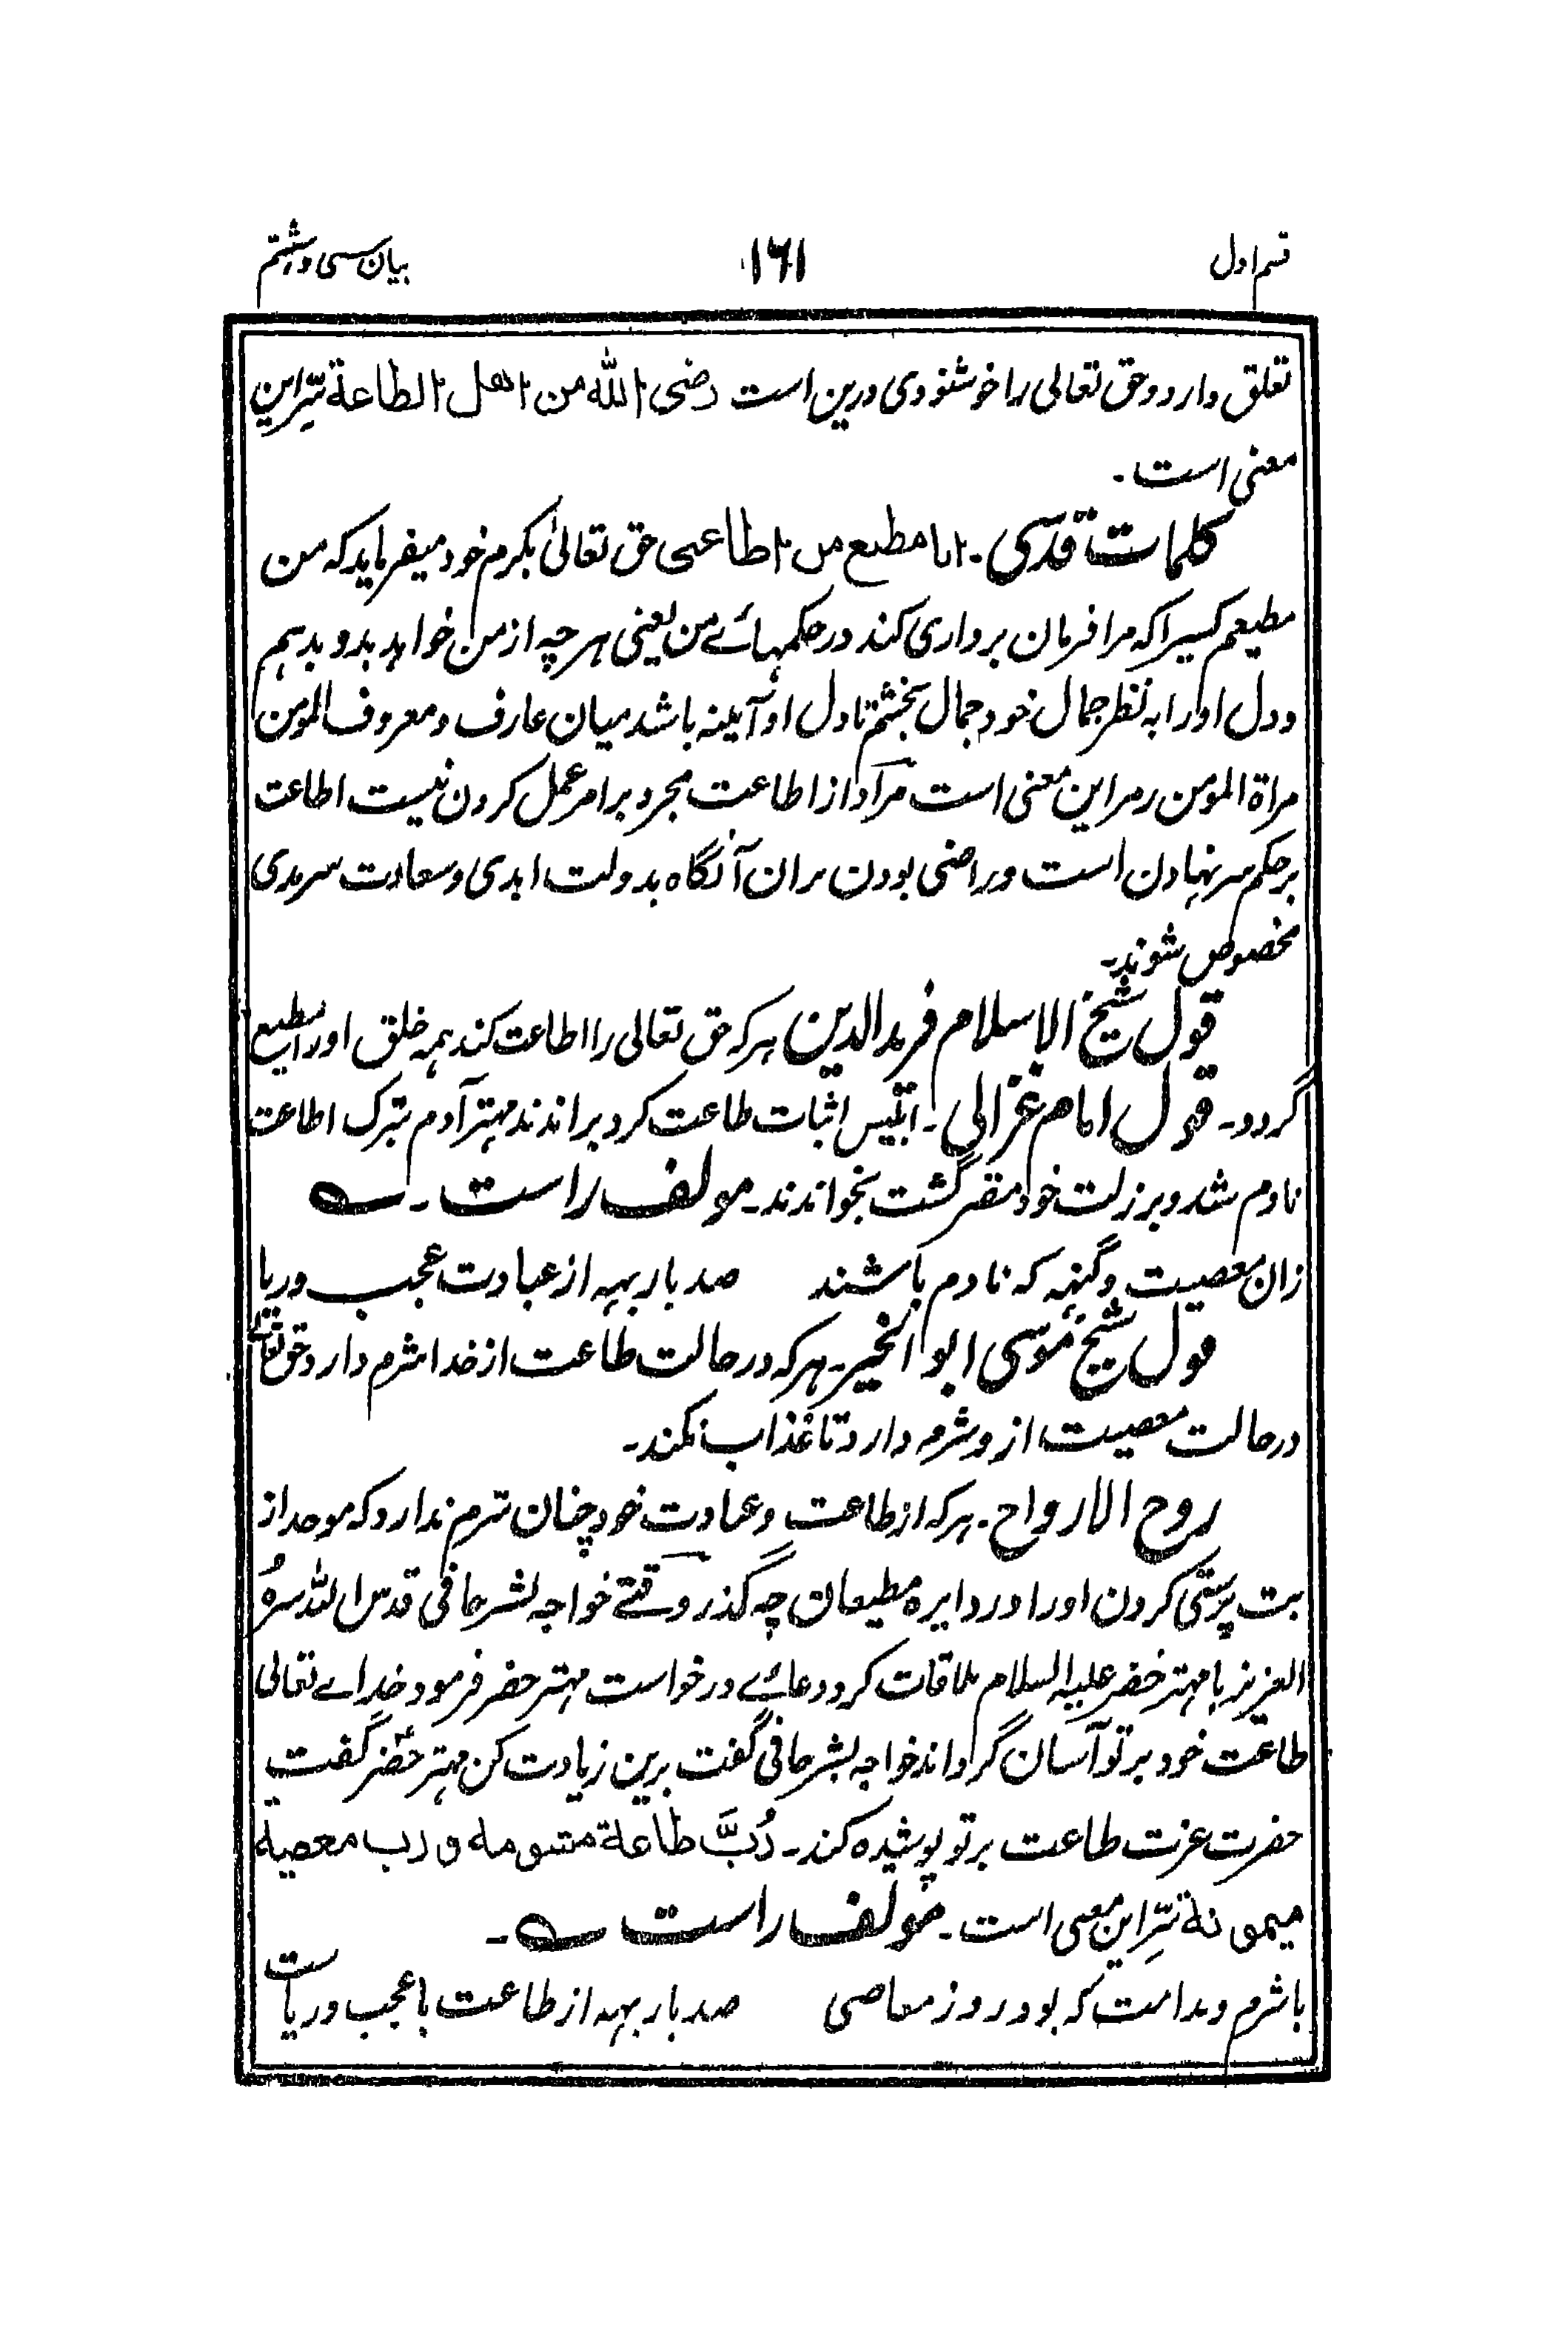 قسم اول ۱۶۱ بیان سی و هشتم
تعلق دارد و حق تعالی را خوشنودی درین است رضی الله من اهل الطاعة سِرّ این
معنی است۔
کلمات قدسی۔ انا مطیع من اطاعنی حق تعالیٰ بکرم خود میفرماید که من
مطیعم کسیرا که مرا فرمان برداری کند در حکمهائے من یعنی هر چه از من خواهد بدو بدهم
و دل او را به نظر جمال خود جمال بخشم تا دل او آیینه باشد میان عارف و معروف المومن
مراة المومن رمز این معنی است مراد از اطاعت مجرد بر امر عمل کردن نیست اطاعت
بر حکم سر نهادن است و راضی بودن بران آنگاه بدولت ابدی و سعادت سرمدی
مخصوص شوند۔
قول شیخ الاسلام فرید الدین هر که حق تعالی را اطاعت کند همه خلق او را مطیع
گردد۔ قول امام غزالی۔ ابلیس اثبات طاعت کرد براندند مهتر آدم بترک اطاعت
نادم شد و بر زلت خود مقر گشت بخواندند۔ مولف راست۔ ؎
زان معصیت و گنه که نادم باشند صد بار بهه از عبادت عجب و ریا
قول شیخ موسی ابو الخیر۔ هر که در حالت طاعت از خدا شرم دارد حق تعالیٰ
در حالت معصیت از و شرم دارد تا عذاب نکند۔
روح الارواح۔ هر که از طاعت و عبادت خود چنان شرم ندارد که موحد از
بت پرستی کردن او را در دایره مطیعان چه گذر وقتے خواجه بشر حافی قدس الله سره
العزیز با مهتر خضر علیه السلام ملاقات کرد و دعائے درخواست مهتر خضر فرمود خداے تعالی
طاعت خود بر تو آسان گرداند خواجه بشر حافی گفت برین زیادت کن مهتر خضر گفت
حضرت عزت طاعت بر تو پوشیده کند۔ رُبَّ طاعة مشومة و رب معصیة
میمونة سِرّ این معنی است۔ مولف راست ؎ ۔
با شرم و ندامت که بود روز معاصی صد بار بهه از طاعت با عجب و ریاست